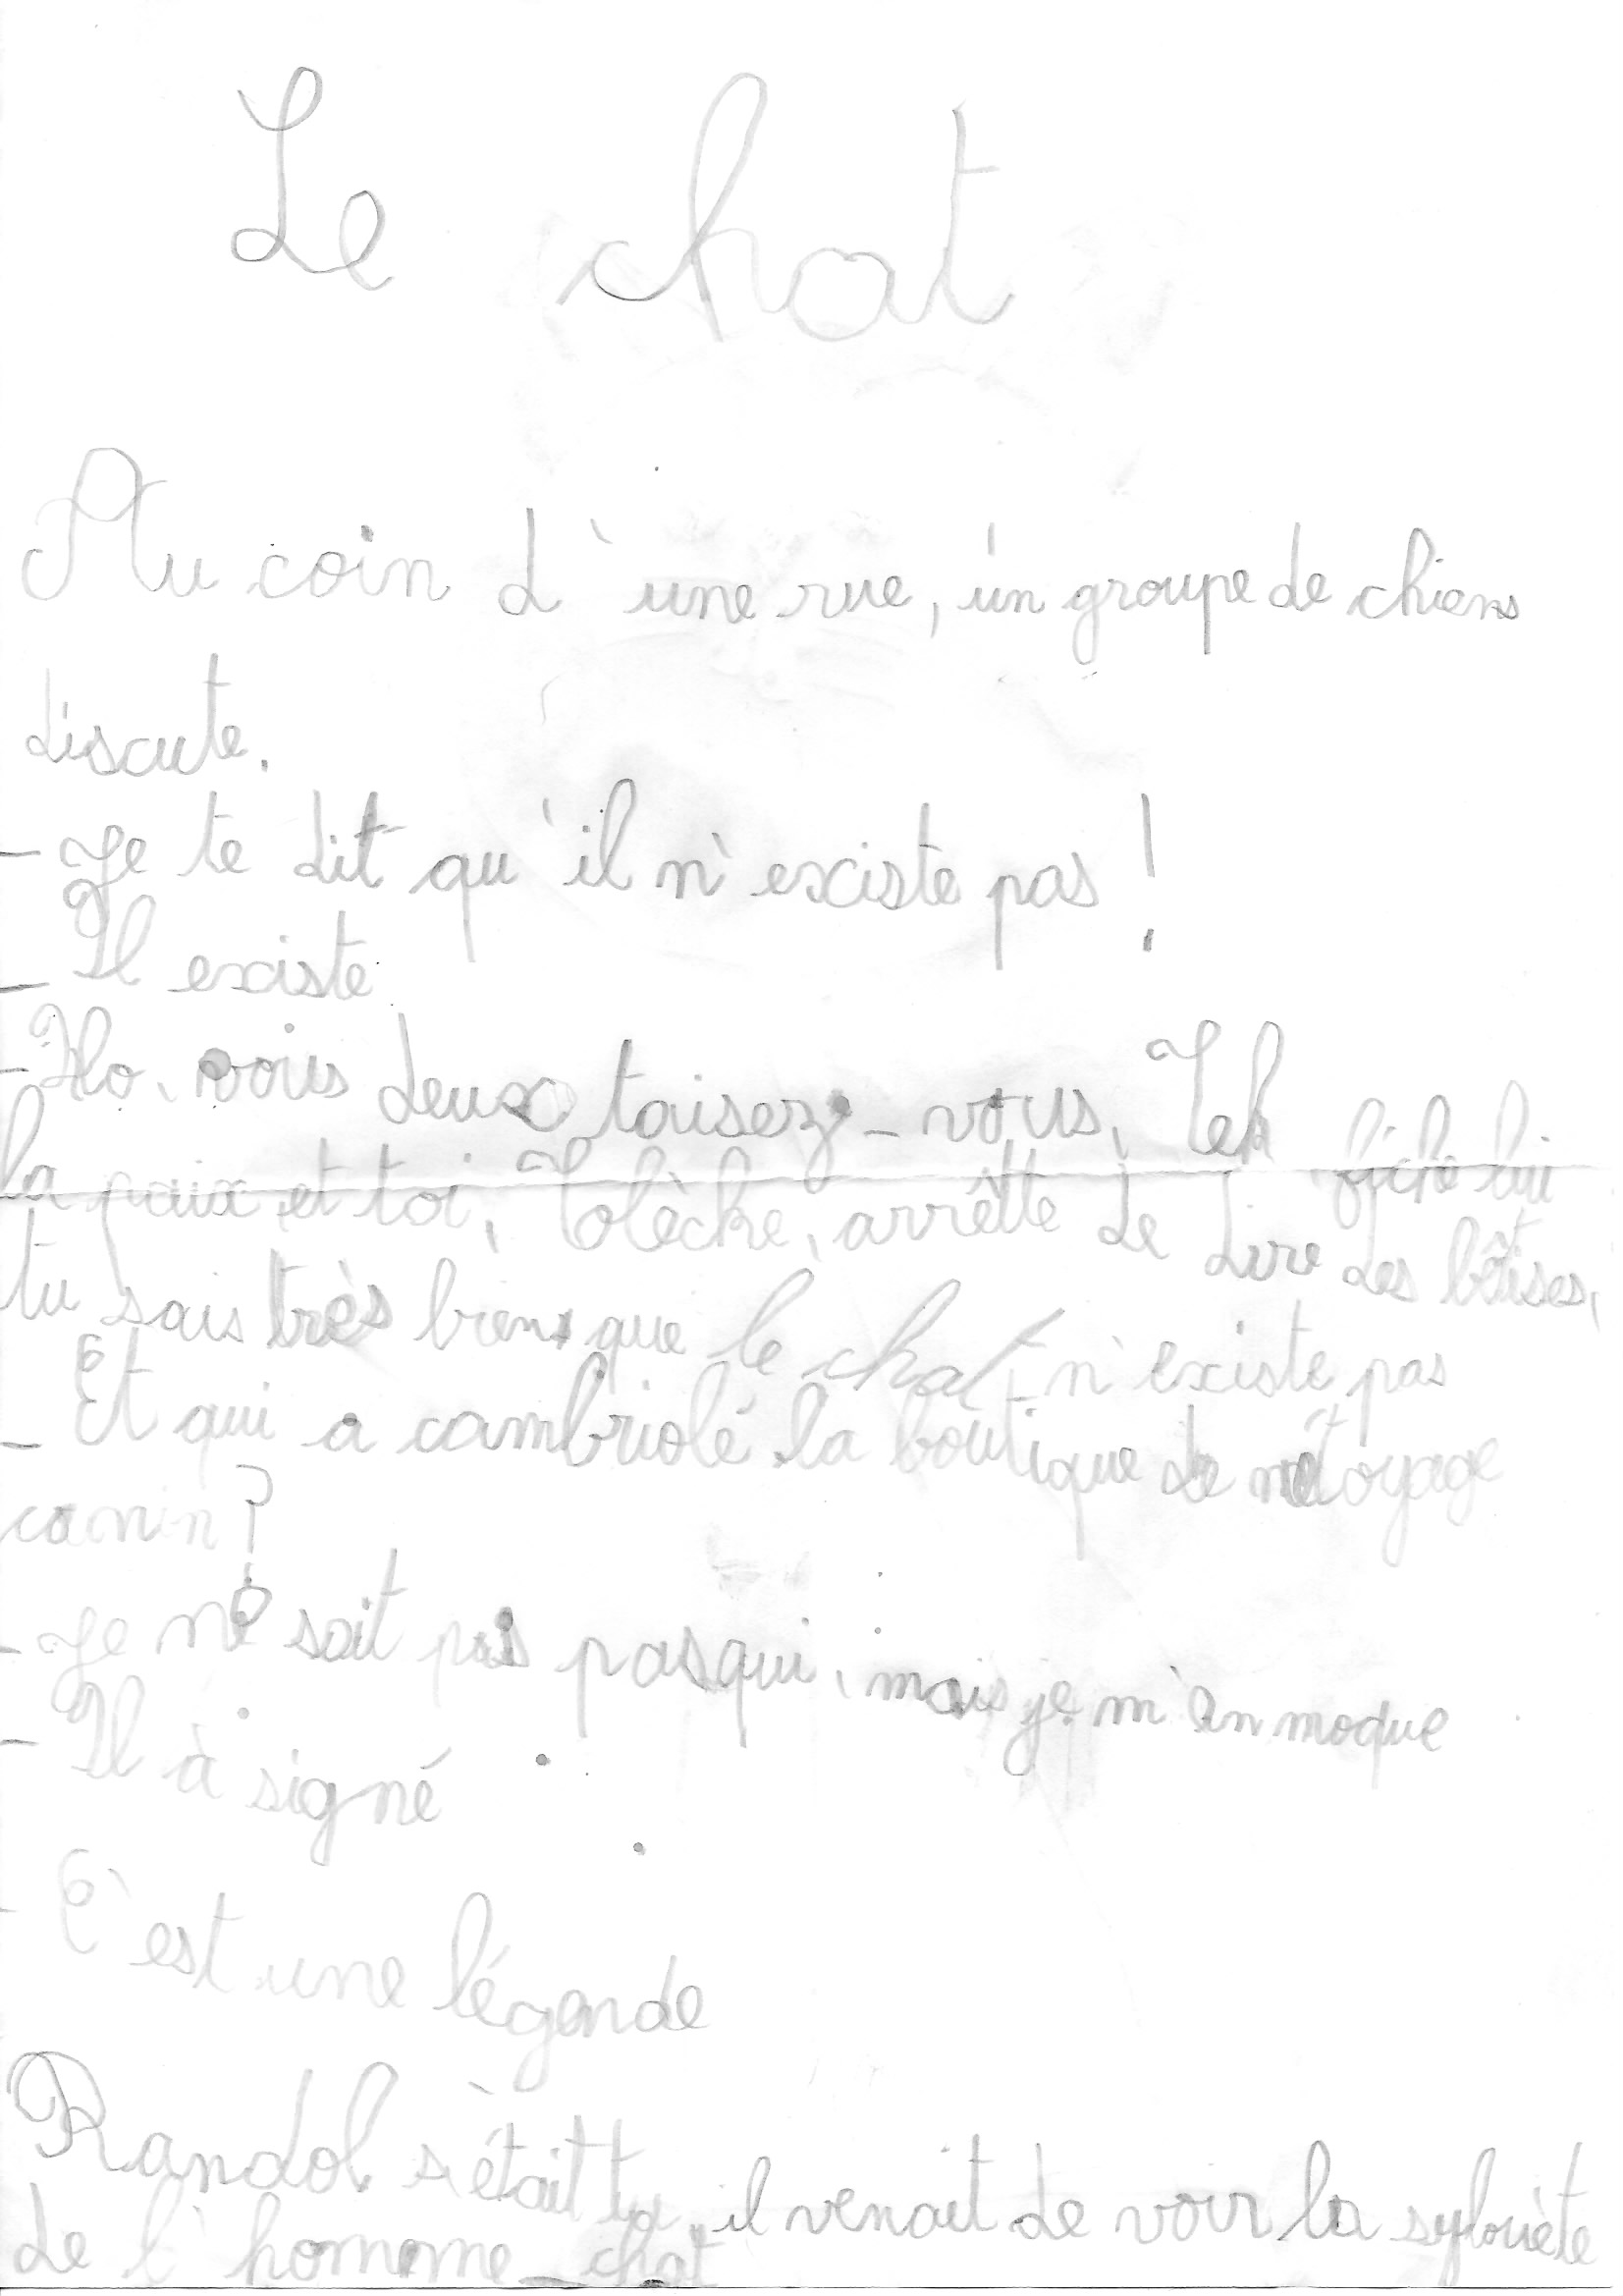 Le chat
Au coin d'une rue, un groupe de chiens
discute.
- Je te dit qu'il n'existe pas !
- Il existe
- Ho, vous deux taisez-vous, Tek fiche lui
la paix et toi, Tolèche, arrêtte de dire des bêtises,
tu sais très bien que le chat n'existe pas
- Et qui a cambriolé la boutique de nétoyage
canin ?
- Je ne sait pas pasqui, mais je m'en moque
- Il à signé
- C'est une légende
Randol s'était tu, il venait de voir la sylouète
de l'homme-chat